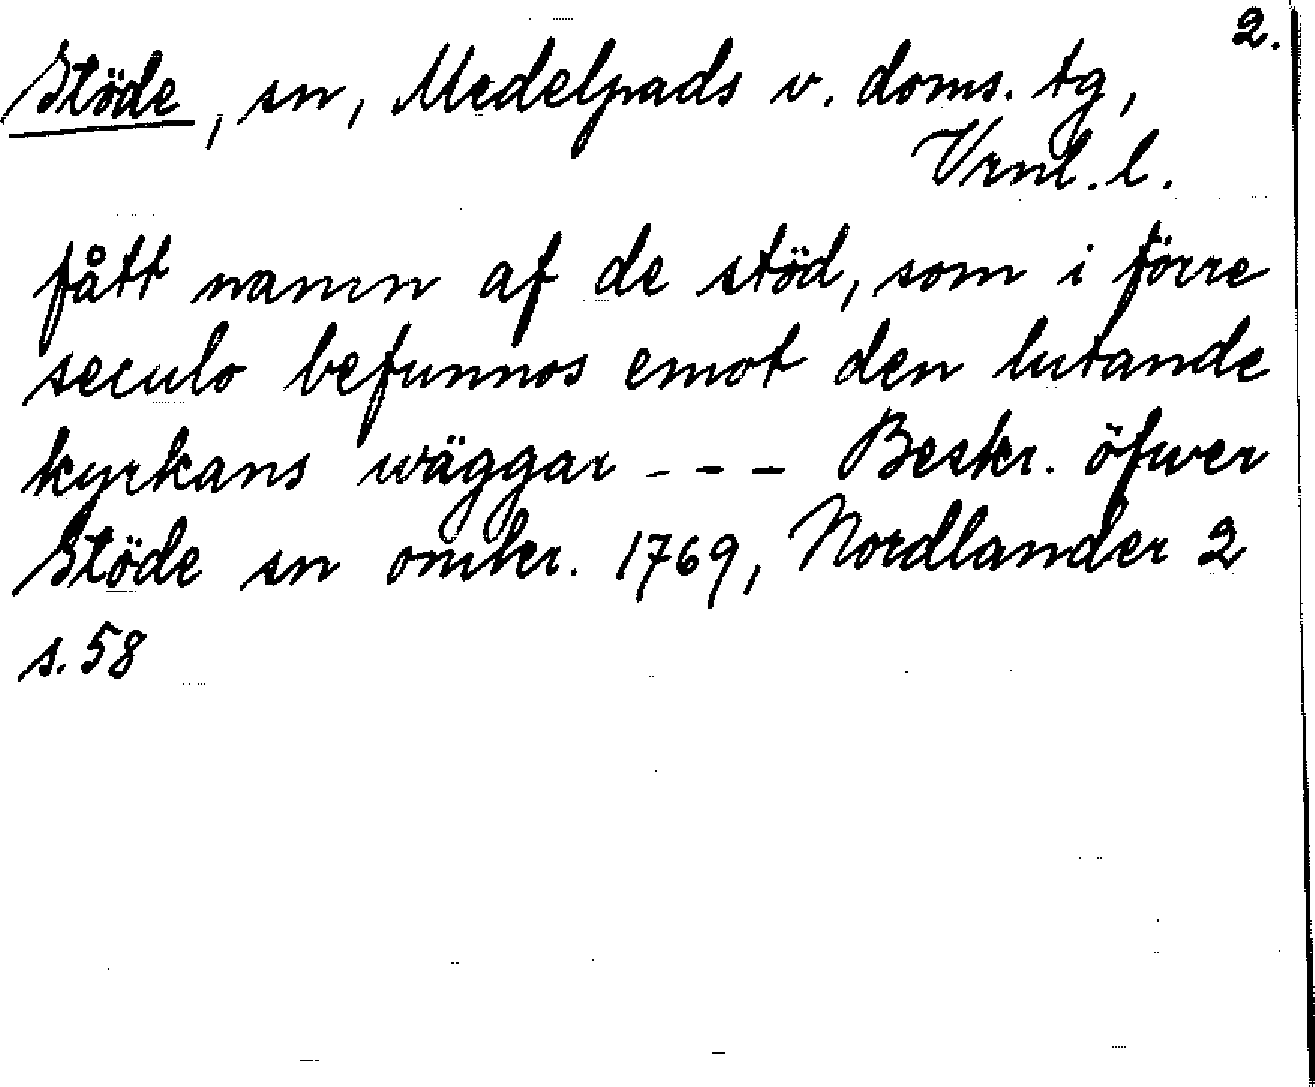 2.
Stöde, sn, Medelpads v. doms. tg,
Vrnl. l.
fått namn af de stöd, som i förre
seculo befunnos emot den lutande
kyrkans wäggar - - - Beskr. öfwer
Stöde sn omkr. 1769, Nordlander 2
s. 58